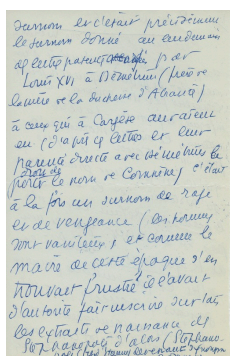 surnom et c'était précisément
le surnom donné au lendemain
de lettres patentes par
Louis XVI à Démétrius (frère de
la mère de la duchesse d'Abrantès)
à ceux qui à Cargèse auraient
eu (d'après ces lettres et leur
parenté directe avec Démétrius le
droit de
porter le nom de Comnène) c'était
à la fois un surnom de rage
et de vengeance (les hommes
sont vaniteux) et comme le
maire de cette époque s'en
trouvait frustré il avait
d'autorité fait inscrire sur
les extraits de naissance des
Stephanopoli d'alors (Stephano